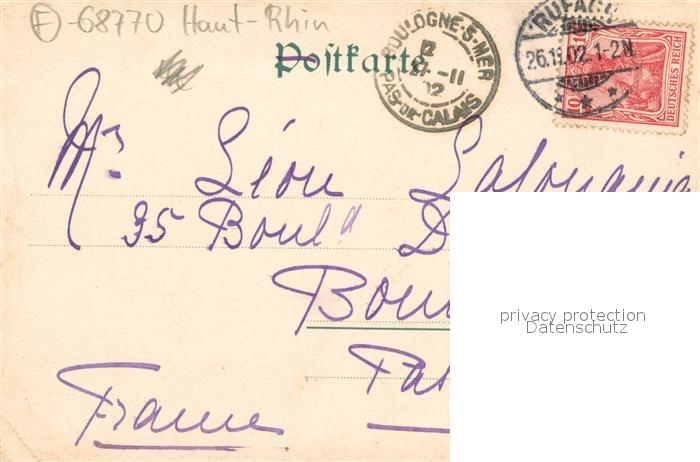 F -68770 Haut-Rhin
Postkarte
BOULOGNE-S-MER
PAS-DE-CALAIS
RUFACH
26.11.02.1-2N
DEUTSCHES REICH
10
Mr. Léon
35 Boul d
Boul
Pas
France
privacy protection
Datenschutz